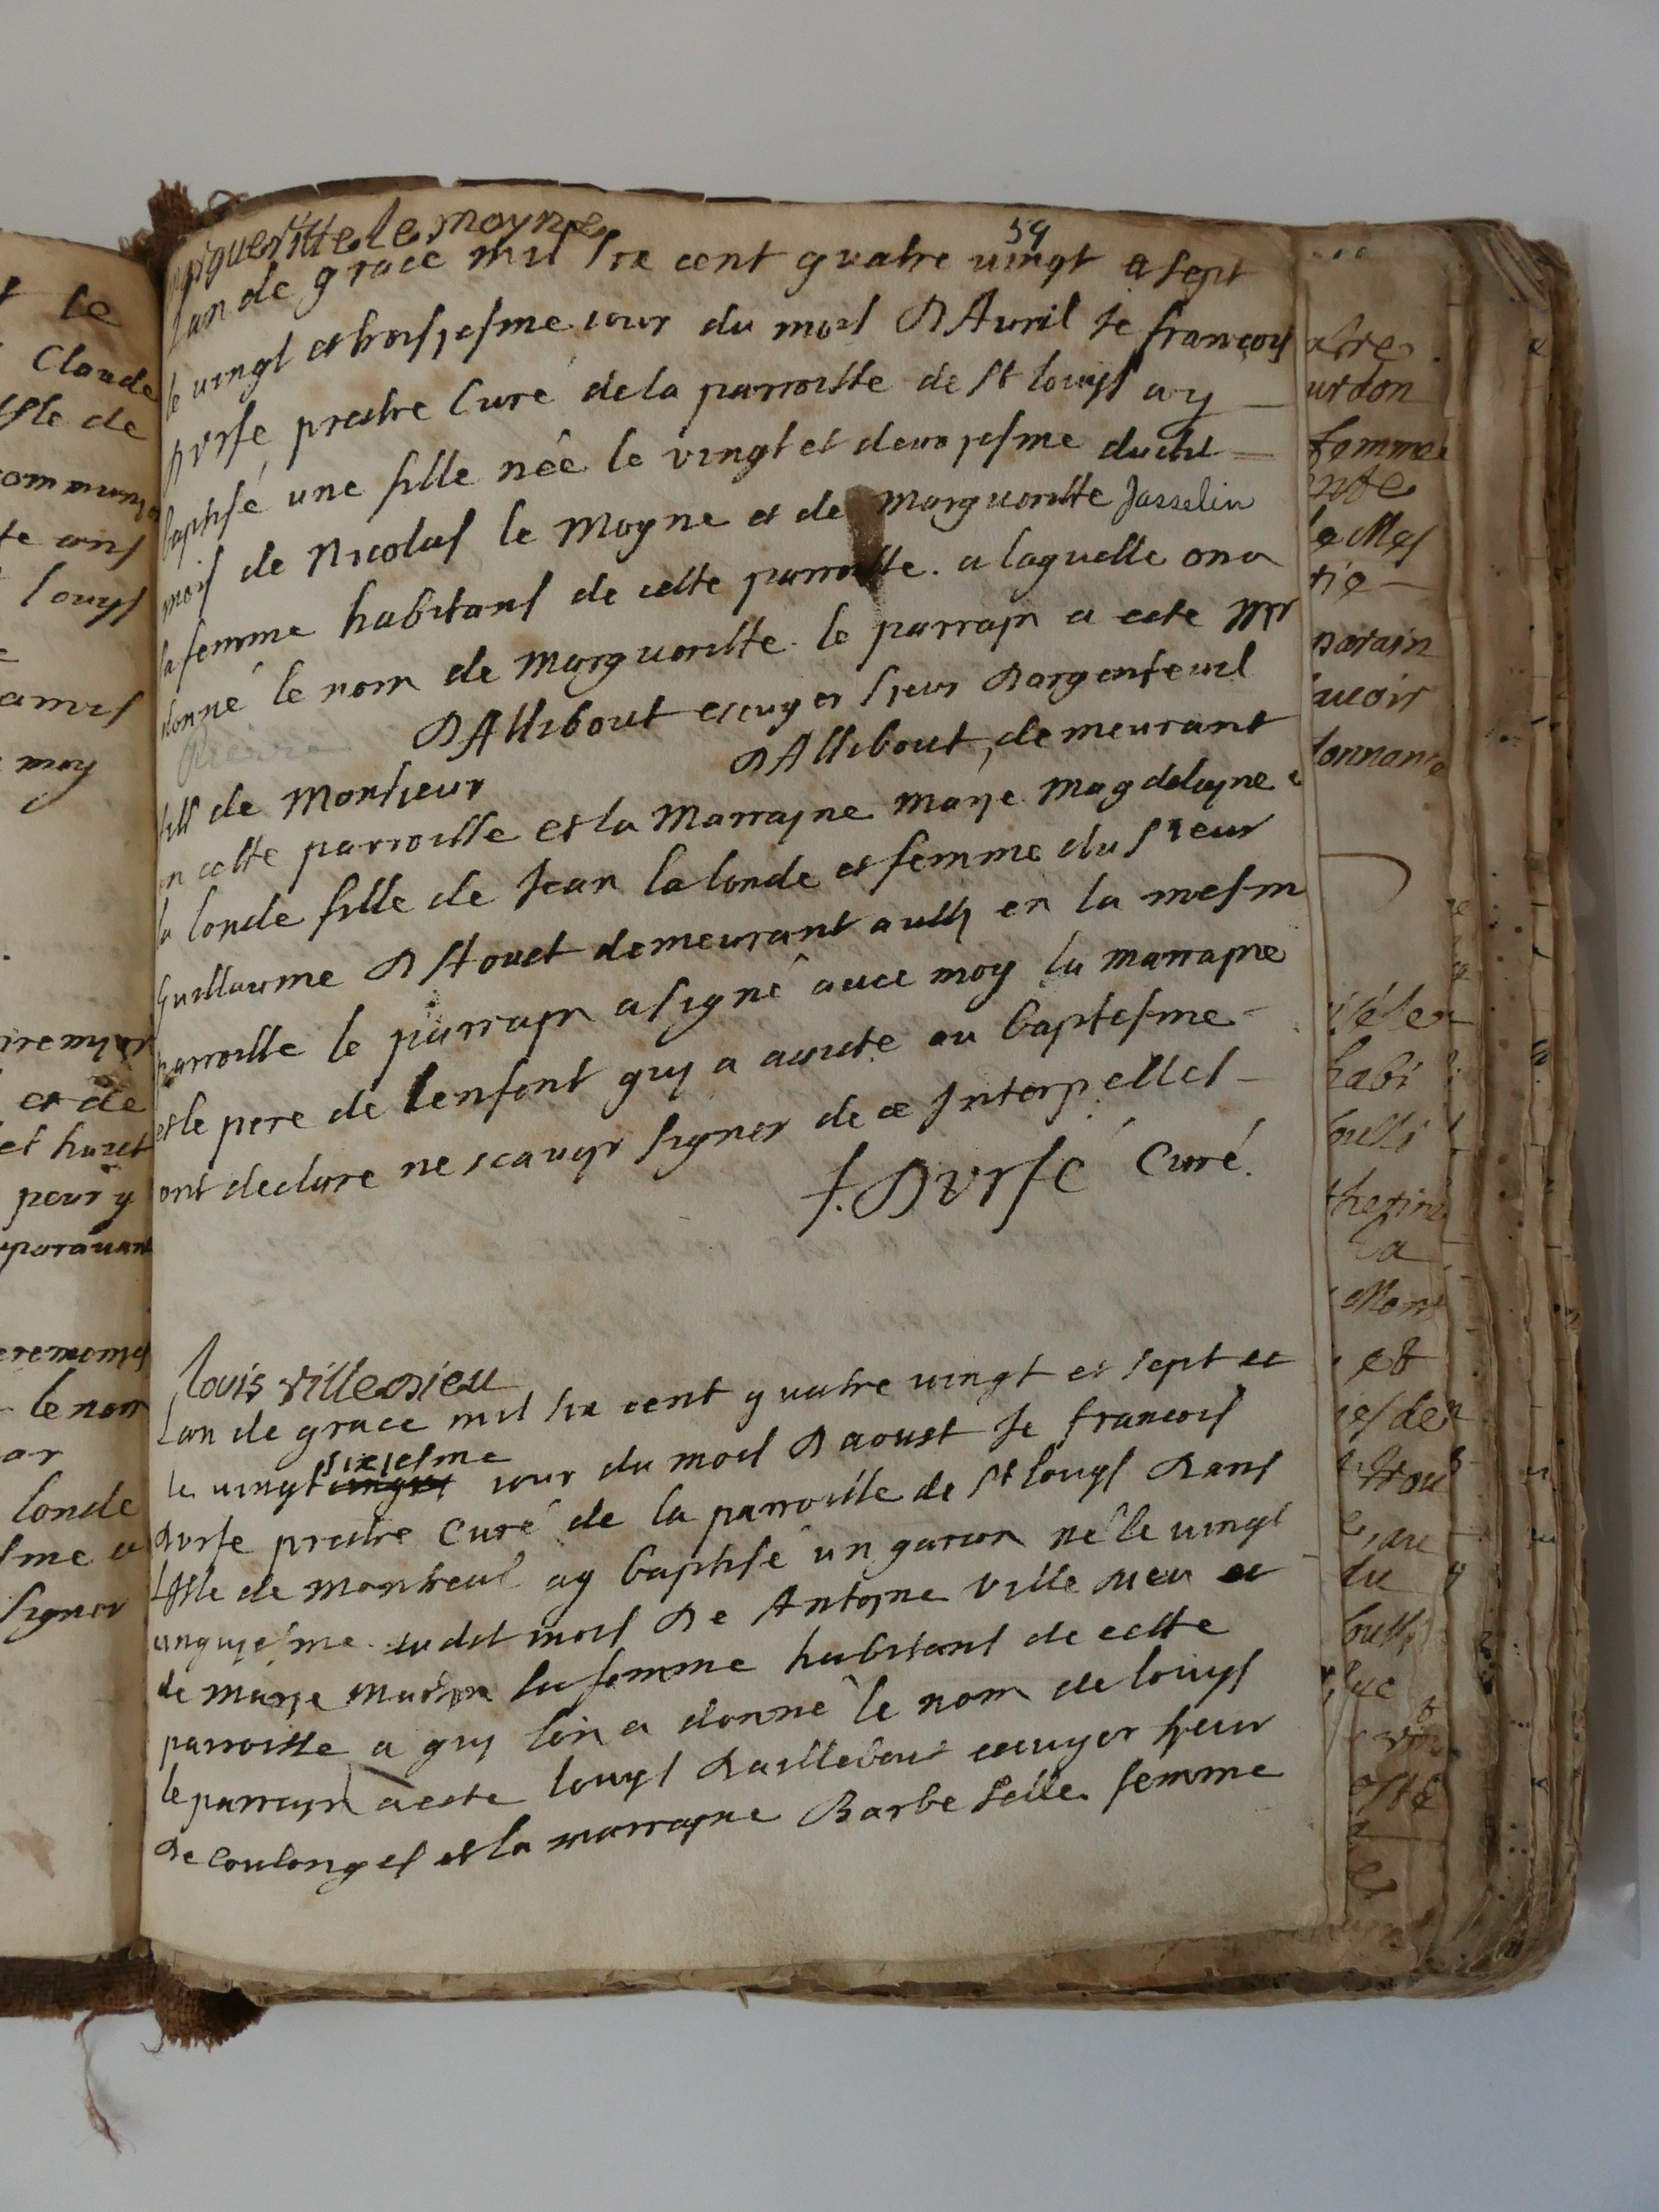 le
Claude
Isle de
ans
louys
amis
moy
et de
pour y
auparavant
le nom
londe
signer
59
Margueritte le moyne
Lan de grace mil six cent quatre vingt et sept
le vingt et troisjesme iour du mois D'Avril Je francois
Dvrfé prestre Curé de la parroisse de St louys ay
baptisé une fille née le vingt et deuxjesme dudit
mois de Nicolas le Moyne et de Marguoritte Jasselin
sa femme habitans de cette parroisse. a laquelle on a
donné le nom de Marguoritte. le parrajn a este Mr
Pierre DAllibout escuyer sjeur Dargenteuil
fils de Monsieur DAllibout, demeurant
en cette parroisse et la Marrajne Marje Magdelajne
la londe fille de Jean la londe et femme du sieur
Guillaume DStouet demeurant aussy en la mesm
parroisse le parrajn a signé avec moy la marrajne
et le pere de lenfant quy a assisté au baptesme
ont declare ne scavojr signer de ce Interpelles
f. Dvrfé Curé.
louis villedieu
Lan de grace mil six cent quatre vingt et sept et
le vingt sixjesme iour du mois Daoust Je francois
Dvrfe prestre Curé de la parroisse de St louys Dans
LIsle de Montreal ay baptisé un garcon né le vingt
cinquiesme dudit mois De Antojne Ville Dieu et
de Marje sa femme habitans de cette
parroisse a quy lon a donné le nom de louys
le parrajn a este louys Daillebout escuyer sjeur
De Coulonges et la marrajne Barbe Selle femme
urdon
femme
parain
habi
la
et
du